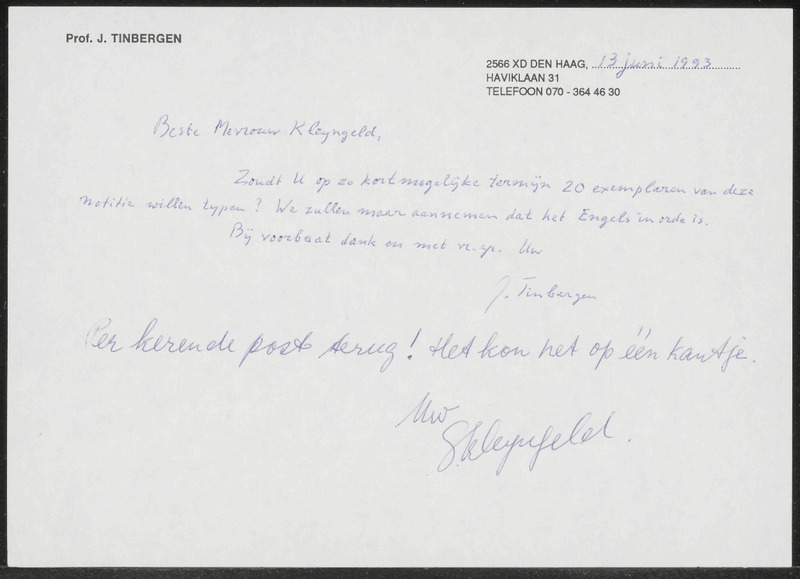 Prof. J. TINBERGEN
2566 XD DEN HAAG, 13 juni 1993
HAVIKLAAN 31
TELEFOON 070 - 364 46 30
Beste Mevrouw Kleyngeld,
Zoudt U op zo kort mogelijke termijn 20 exemplaren van deze
notitie willen typen? We zullen maar aannemen dat het Engels in orde is.
Bij voorbaat dank en met vr. gr. Uw
J. Tinbergen
Per kerende post terug! Het kon net op één kantje.
Uw
S. Kleyngeld.